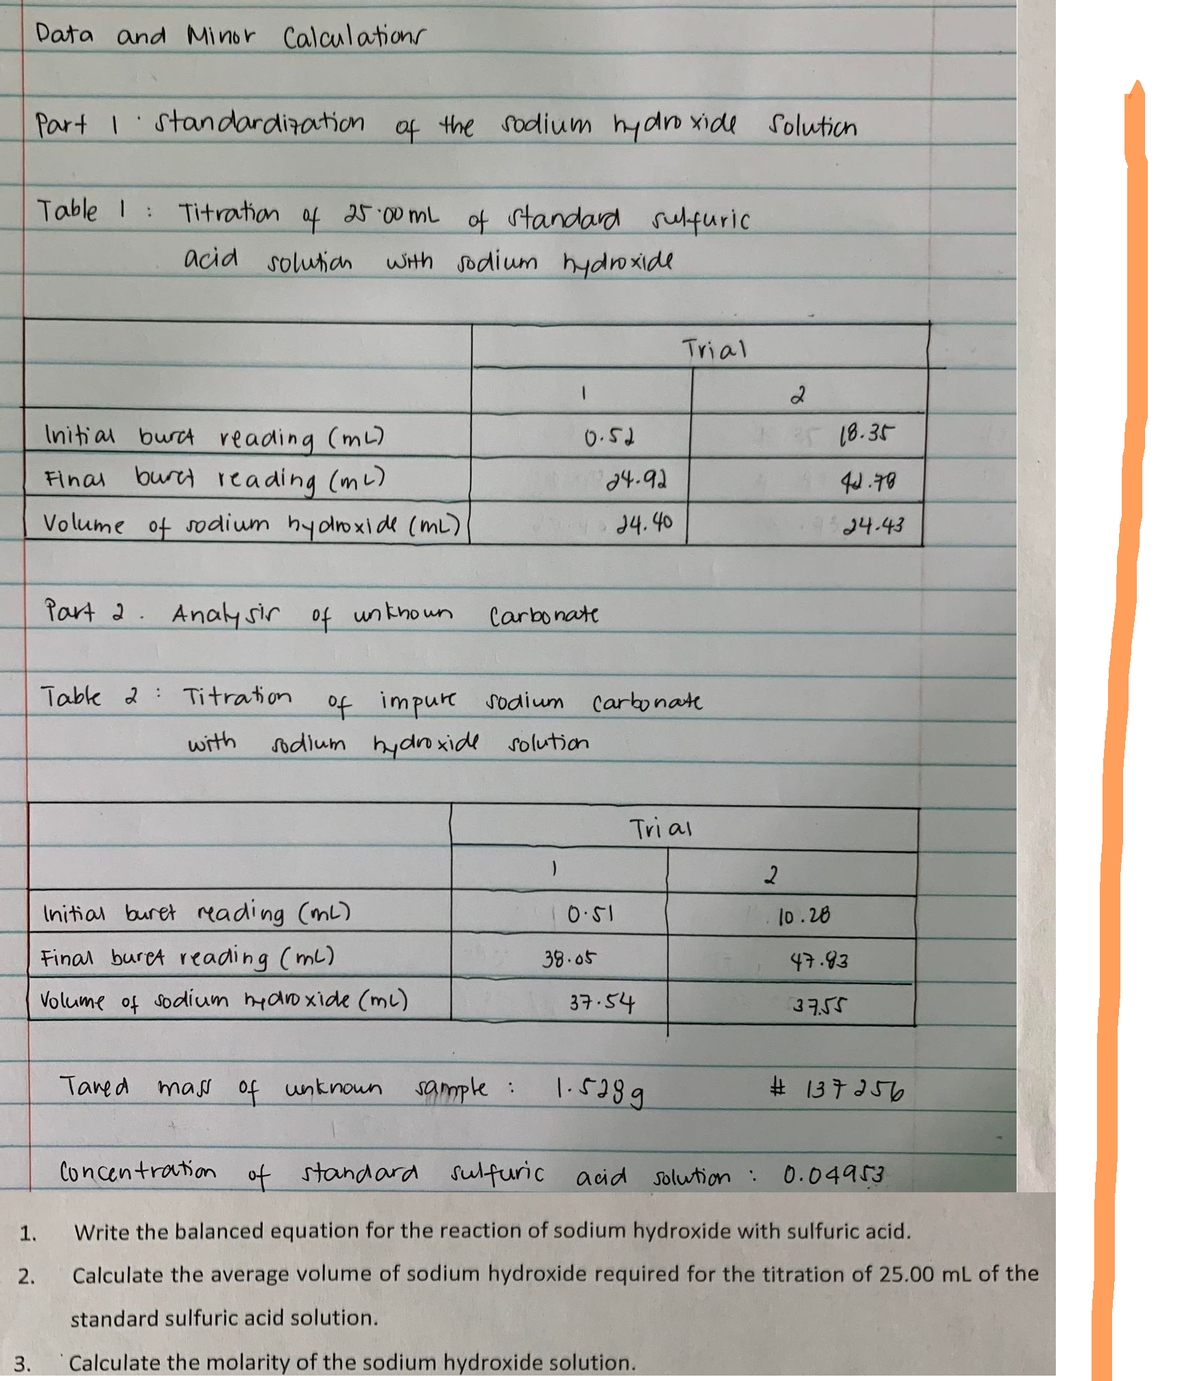 Data and Minor Calculations
Part 1 · Standardization of the sodium hydroxide solution
Table 1 : Titration of 25.00 mL of standard sulfuric
acid solution with sodium hydroxide
Trial
1 2
Initial buret reading (mL) 0.52 18.35
Final buret reading (mL) 24.92 42.78
Volume of sodium hydroxide (mL) 24.40 24.43
Part 2. Analysis of unknown carbonate
Table 2 : Titration of impure sodium carbonate
with sodium hydroxide solution
Trial
1 2
Initial buret reading (mL) 0.51 10.28
Final buret reading (mL) 38.05 47.83
Volume of sodium hydroxide (mL) 37.54 37.55
Tared mass of unknown sample : 1.528g # 137256
Concentration of standard sulfuric acid solution : 0.04953
1. Write the balanced equation for the reaction of sodium hydroxide with sulfuric acid.
2. Calculate the average volume of sodium hydroxide required for the titration of 25.00 mL of the
standard sulfuric acid solution.
3. Calculate the molarity of the sodium hydroxide solution.